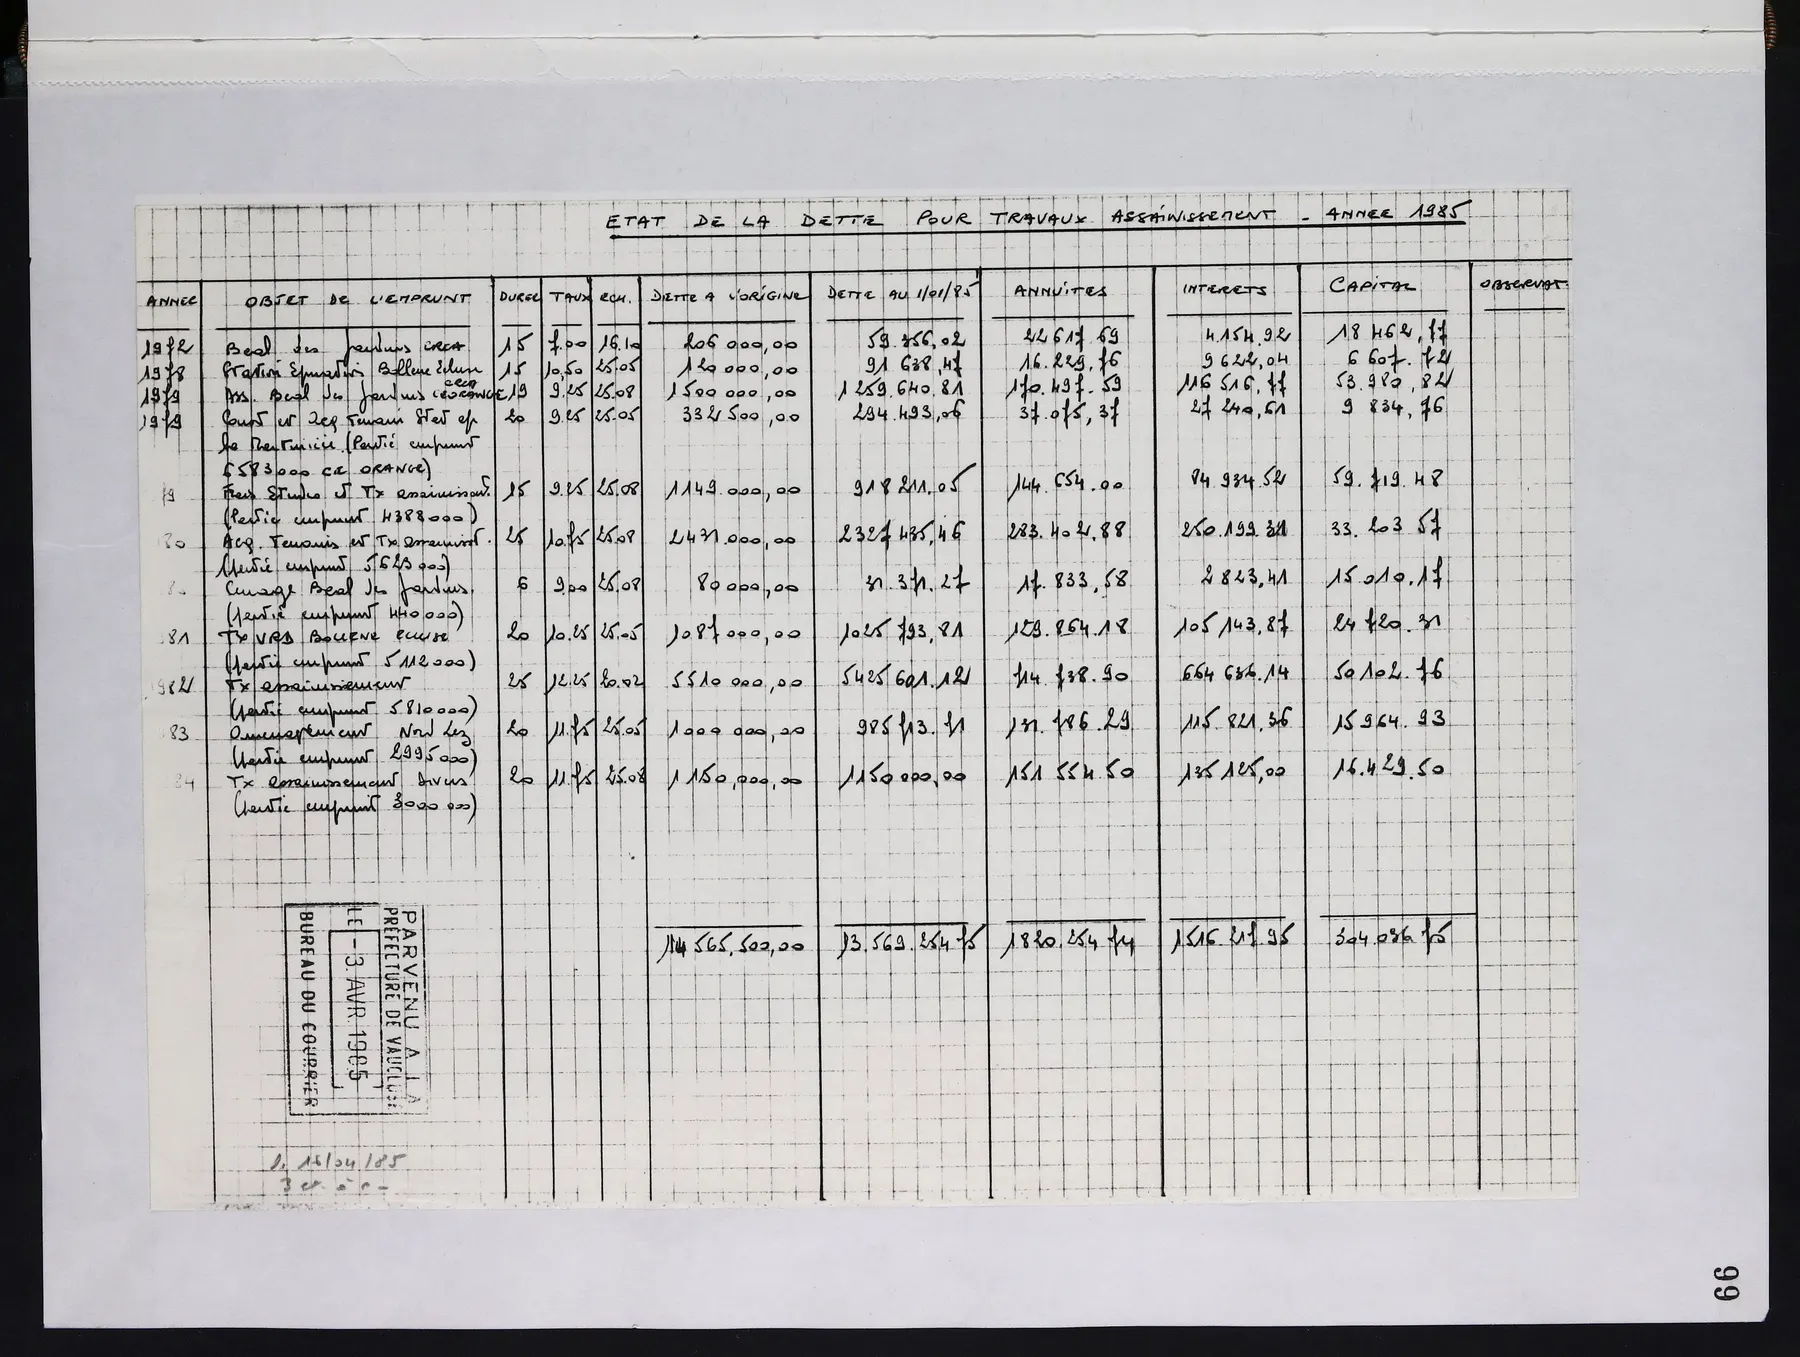 ETAT DE LA DETTE POUR TRAVAUX ASSAINISSEMENT - ANNEE 1985
ANNEE OBJET DE L'EMPRUNT DUREE TAUX ECH. DETTE A L'ORIGINE DETTE AU 1/01/85 ANNUITES INTERETS CAPITAL OBSERVAT.
1972 Beal des Jardins CRCA 15 7.00 16.10 206 000,00 59 356,02 22 617 69 4.154.92 18 462,77
1978 Station Epuration Bollene Ecluse 15 10,50 25.05 120 000,00 91 638,47 16.229,76 9 622,04 6 607.72
1979 Ass. Beal des Jardins CRCA ORANGE 19 9.25 25.08 1 500 000,00 1 259.640.81 170.497.59 116 516,77 53.980,82
1979 Const et acq Terrain Stat ep 20 9.25 25.05 332 500,00 294.493,06 37.075,37 27 240,61 9 834,76
la Martinière (Partie emprunt
6583000 CE ORANGE)
79 Frais Etudes et Tx assainissmt. 15 9.25 25.08 1149.000,00 918 211.05 144.654.00 84 934.52 59.719.48
(Partie emprunt 4388000)
80 Acq. Terrains et Tx assainist. 25 10.75 25.08 2431.000,00 2327 435,46 283.402.88 250.199.31 33.203 57
(Partie emprunt 5623000)
80 Curage Beal des Jardins. 6 9.00 25.08 80 000,00 31.371.27 17.833,58 2 823,41 15.010.17
(partie emprunt 440000)
81 TX VRD BOLLENE ECLUSE 20 10.25 25.05 1087 000,00 1025 793,81 129.864.18 105 143,87 24 720.31
(partie emprunt 5112000)
1982 Tx assainissement 25 12.25 20.02 5510 000,00 5425 601.12 714.738.90 664 636.14 50 102.76
(partie emprunt 5810000)
83 Amenagement Nord Lez 20 11.75 25.05 1000 000,00 985 713.71 131.786.29 115.821.36 15 964.93
(Partie emprunt 2995000)
84 Tx assainissement divers 20 11.75 25.08 1 150,000,00 1150 000,00 151 554 50 135 125,00 16.429.50
(Partie emprunt 3000 000)
14 565.500,00 13.569.254.75 1820.254 74 1516 217 95 304.036 75
PARVENU A LA
PREFECTURE DE VAUCLUSE
LE -3. AVR. 1985
BUREAU DU COURRIER
16/04/85
99